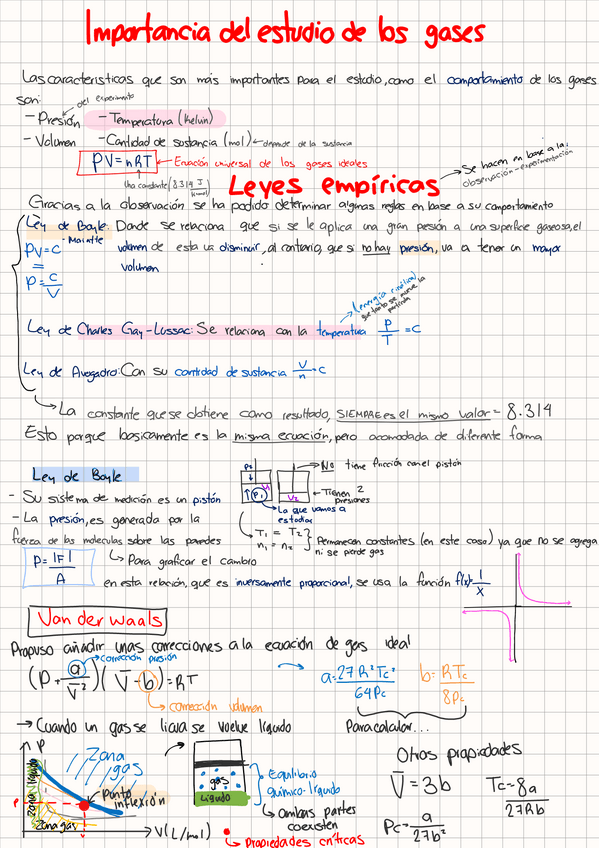 Importancia del estudio de los gases
Las caracteristicas que son más importantes para el estudio, como el comportamiento de los gases
son: del experimento
- Presión - Temperatura (kelvin)
- Volumen - Cantidad de sustancia (mol) ← depende de la sustancia
PV = nRT ← Ecuación universal de los gases ideales
Una constante (8.314 J/Kmol)
Leyes empíricas → Se hacen en base a la: observación-experimentación
Gracias a la observación se ha podido determinar algunas reglas en base a su comportamiento
Ley de Boyle: Donde se relaciona que si se le aplica una gran pesión a una superficie gaseosa, el
- Mariotte
PV = C volumen de esta va disminuir, al contrario, que si no hay presión, va a tener un mayor
= volumen
P = C/V
(energia cinética) que tanto se mueve la partícula
Ley de Charles Gay-Lussac: Se relaciona con la temperatura P/T = C
Ley de Avogadro: Con su cantidad de sustancia V/n = C
→ La constante que se obtiene como resultado, SIEMPRE es el mismo valor = 8.314
Esto porque basicamente es la misma ecuación, pero acomodada de diferente forma
Ley de Boyle
- Su sistema de medición es un pistón
- La presión, es generada por la
fuerza de las moleculas sobre las paredes
P = |F|/A
P1 V1
V2
→ No tiene fricción con el pistón
← Tienen 2 presiones
→ Lo que vamos a estudiar
T1 = T2
n1 = n2
} Permanecen constantes (en este caso) ya que no se agrega
ni se pierde gas
↳ Para graficar el cambio
en esta relación, que es inversamente proporcional, se usa la función f(x) = 1/x
Van der waals
Propuso añadir unas correcciones a la ecuación de gas ideal
→ corrección presión
(P + a/V̄²)(V̄ - b) = RT
→ corrección volumen
a = 27R²Tc²/64Pc
b = RTc/8Pc
→ Cuando un gas se licua se vuelve líquido
Para calcular...
P
Zona líquido
Zona gas
Punto inflexión
P
Zona gas
V
V(L/mol)
gas
Líquido
Equilibrio
químico-líquido
↳ ambas partes
coexisten
↳ Propiedades críticas
Otras propiedades
V̄ = 3b
Tc = 8a/27Rb
Pc = a/27b²